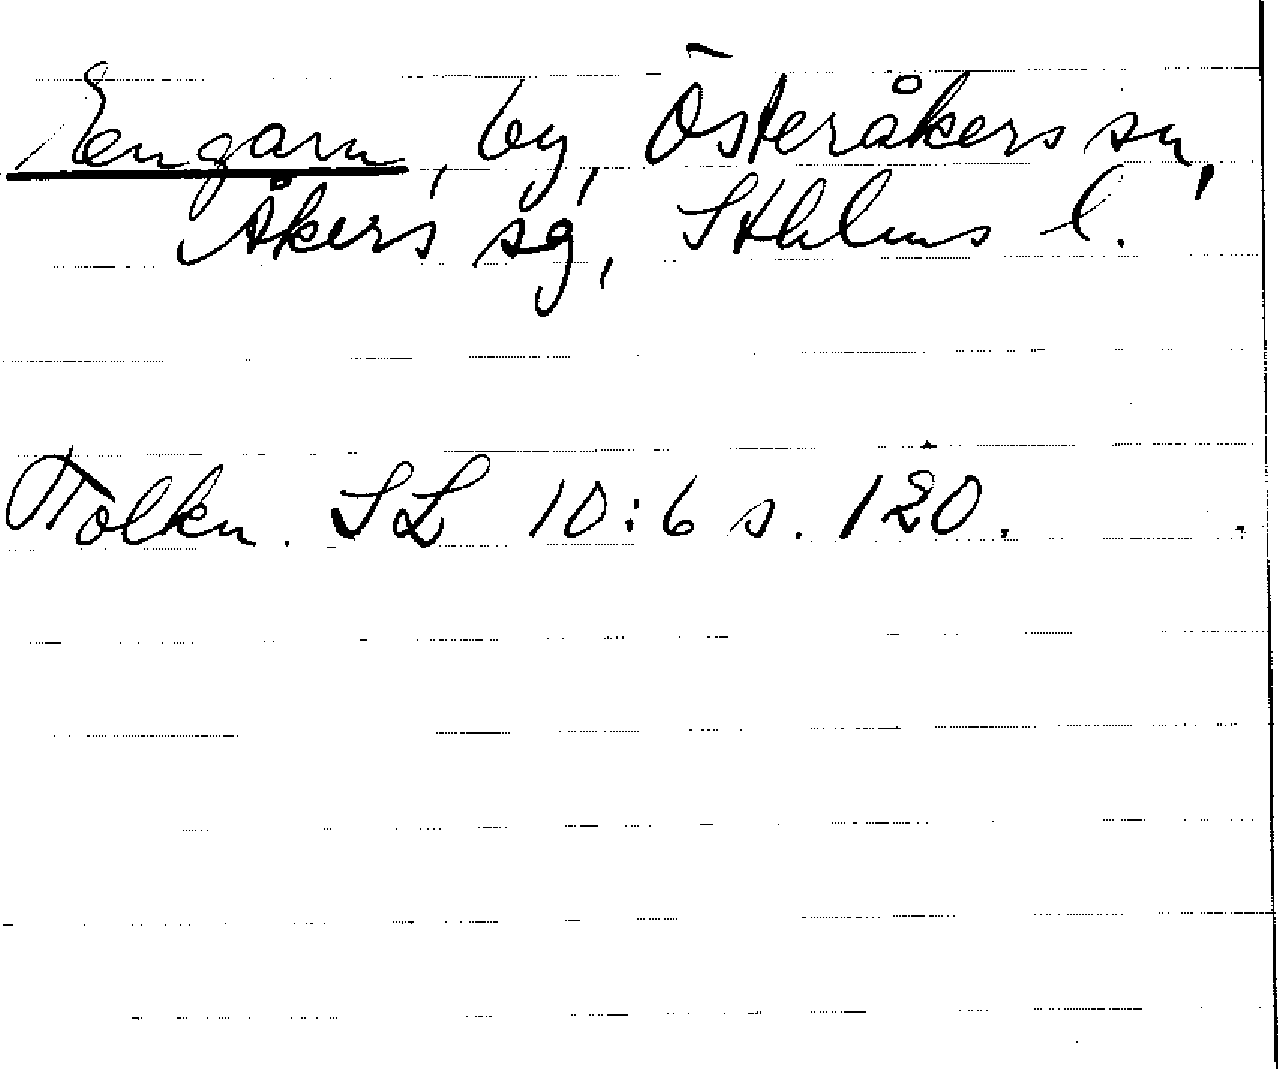 Engarn, by, Österåkers sn,
Åkers sg, Sthlms l.
Tolkn. SL 10:6 s. 120.